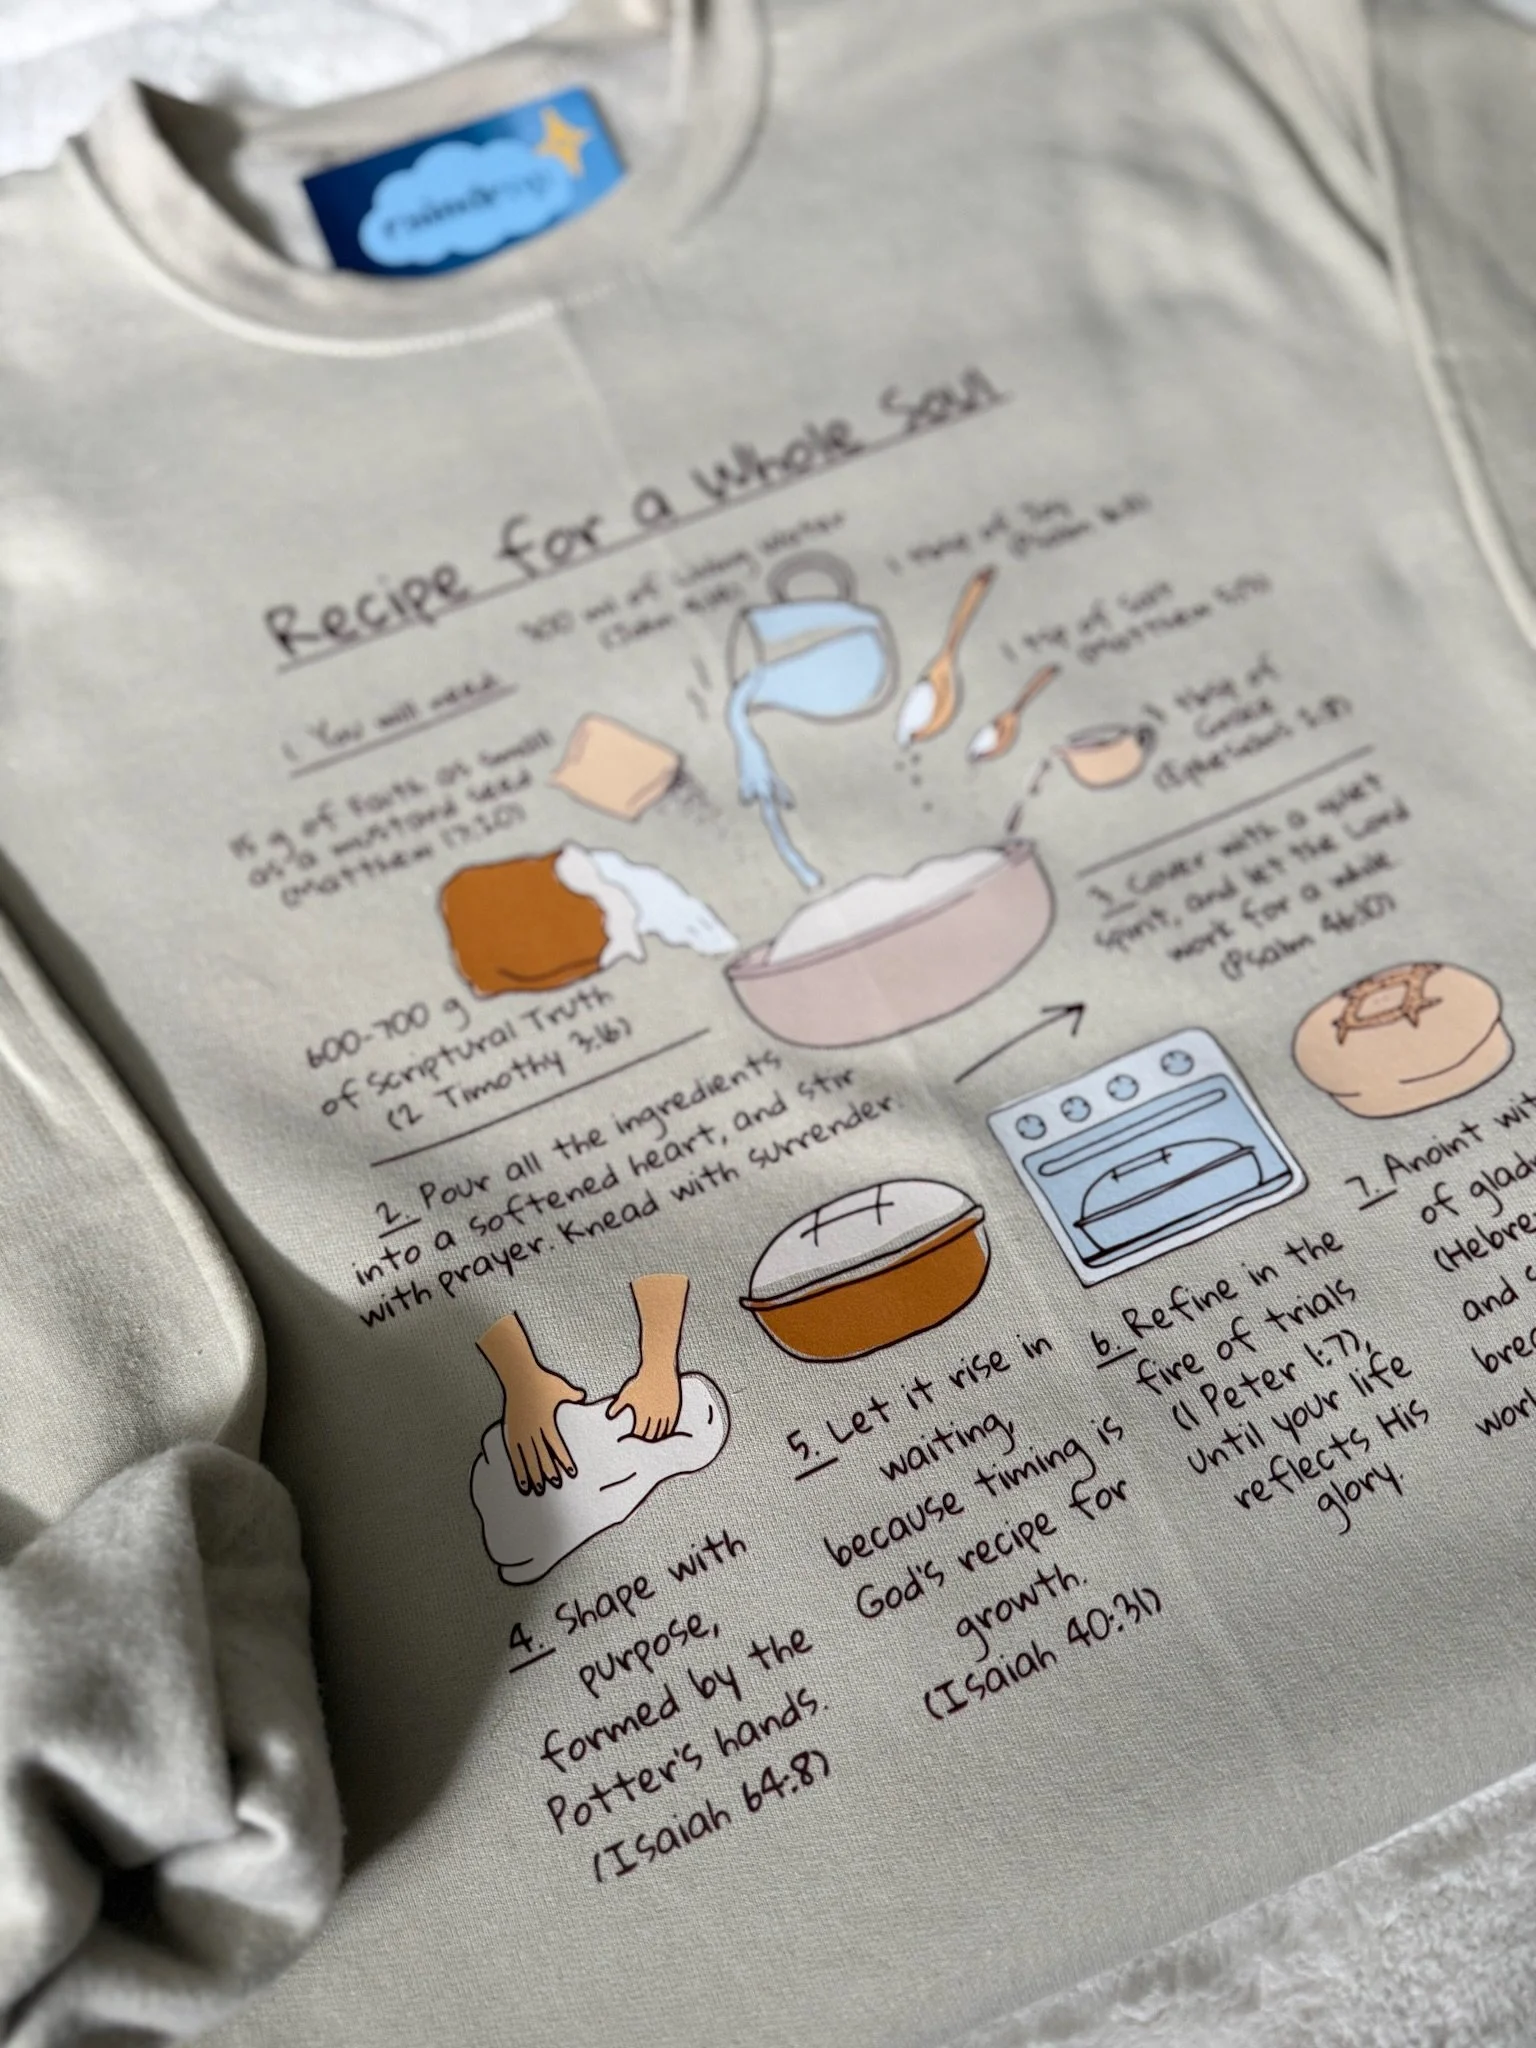 Recipe for a Whole Soul
1. You will need
of Living Water
1 tbsp of Joy
1 tsp of Salt
(Matthew 5:13)
1 tbsp of
Grace
(Ephesians 2:8)
15 g of Faith as small
as a mustard seed
(Matthew 17:20)
600-700 g
of Scriptural Truth
(2 Timothy 3:16)
2. Pour all the ingredients
into a softened heart, and stir
with prayer. Knead with surrender.
3. Cover with a quiet
spirit, and let the Lord
work for a while
(Psalm 46:10)
4. Shape with
purpose,
formed by the
Potter's hands.
(Isaiah 64:8)
5. Let it rise in
waiting,
because timing is
God's recipe for
growth.
(Isaiah 40:31)
6. Refine in the
fire of trials
(1 Peter 1:7),
until your life
reflects His
glory.
7. Anoint
of
and